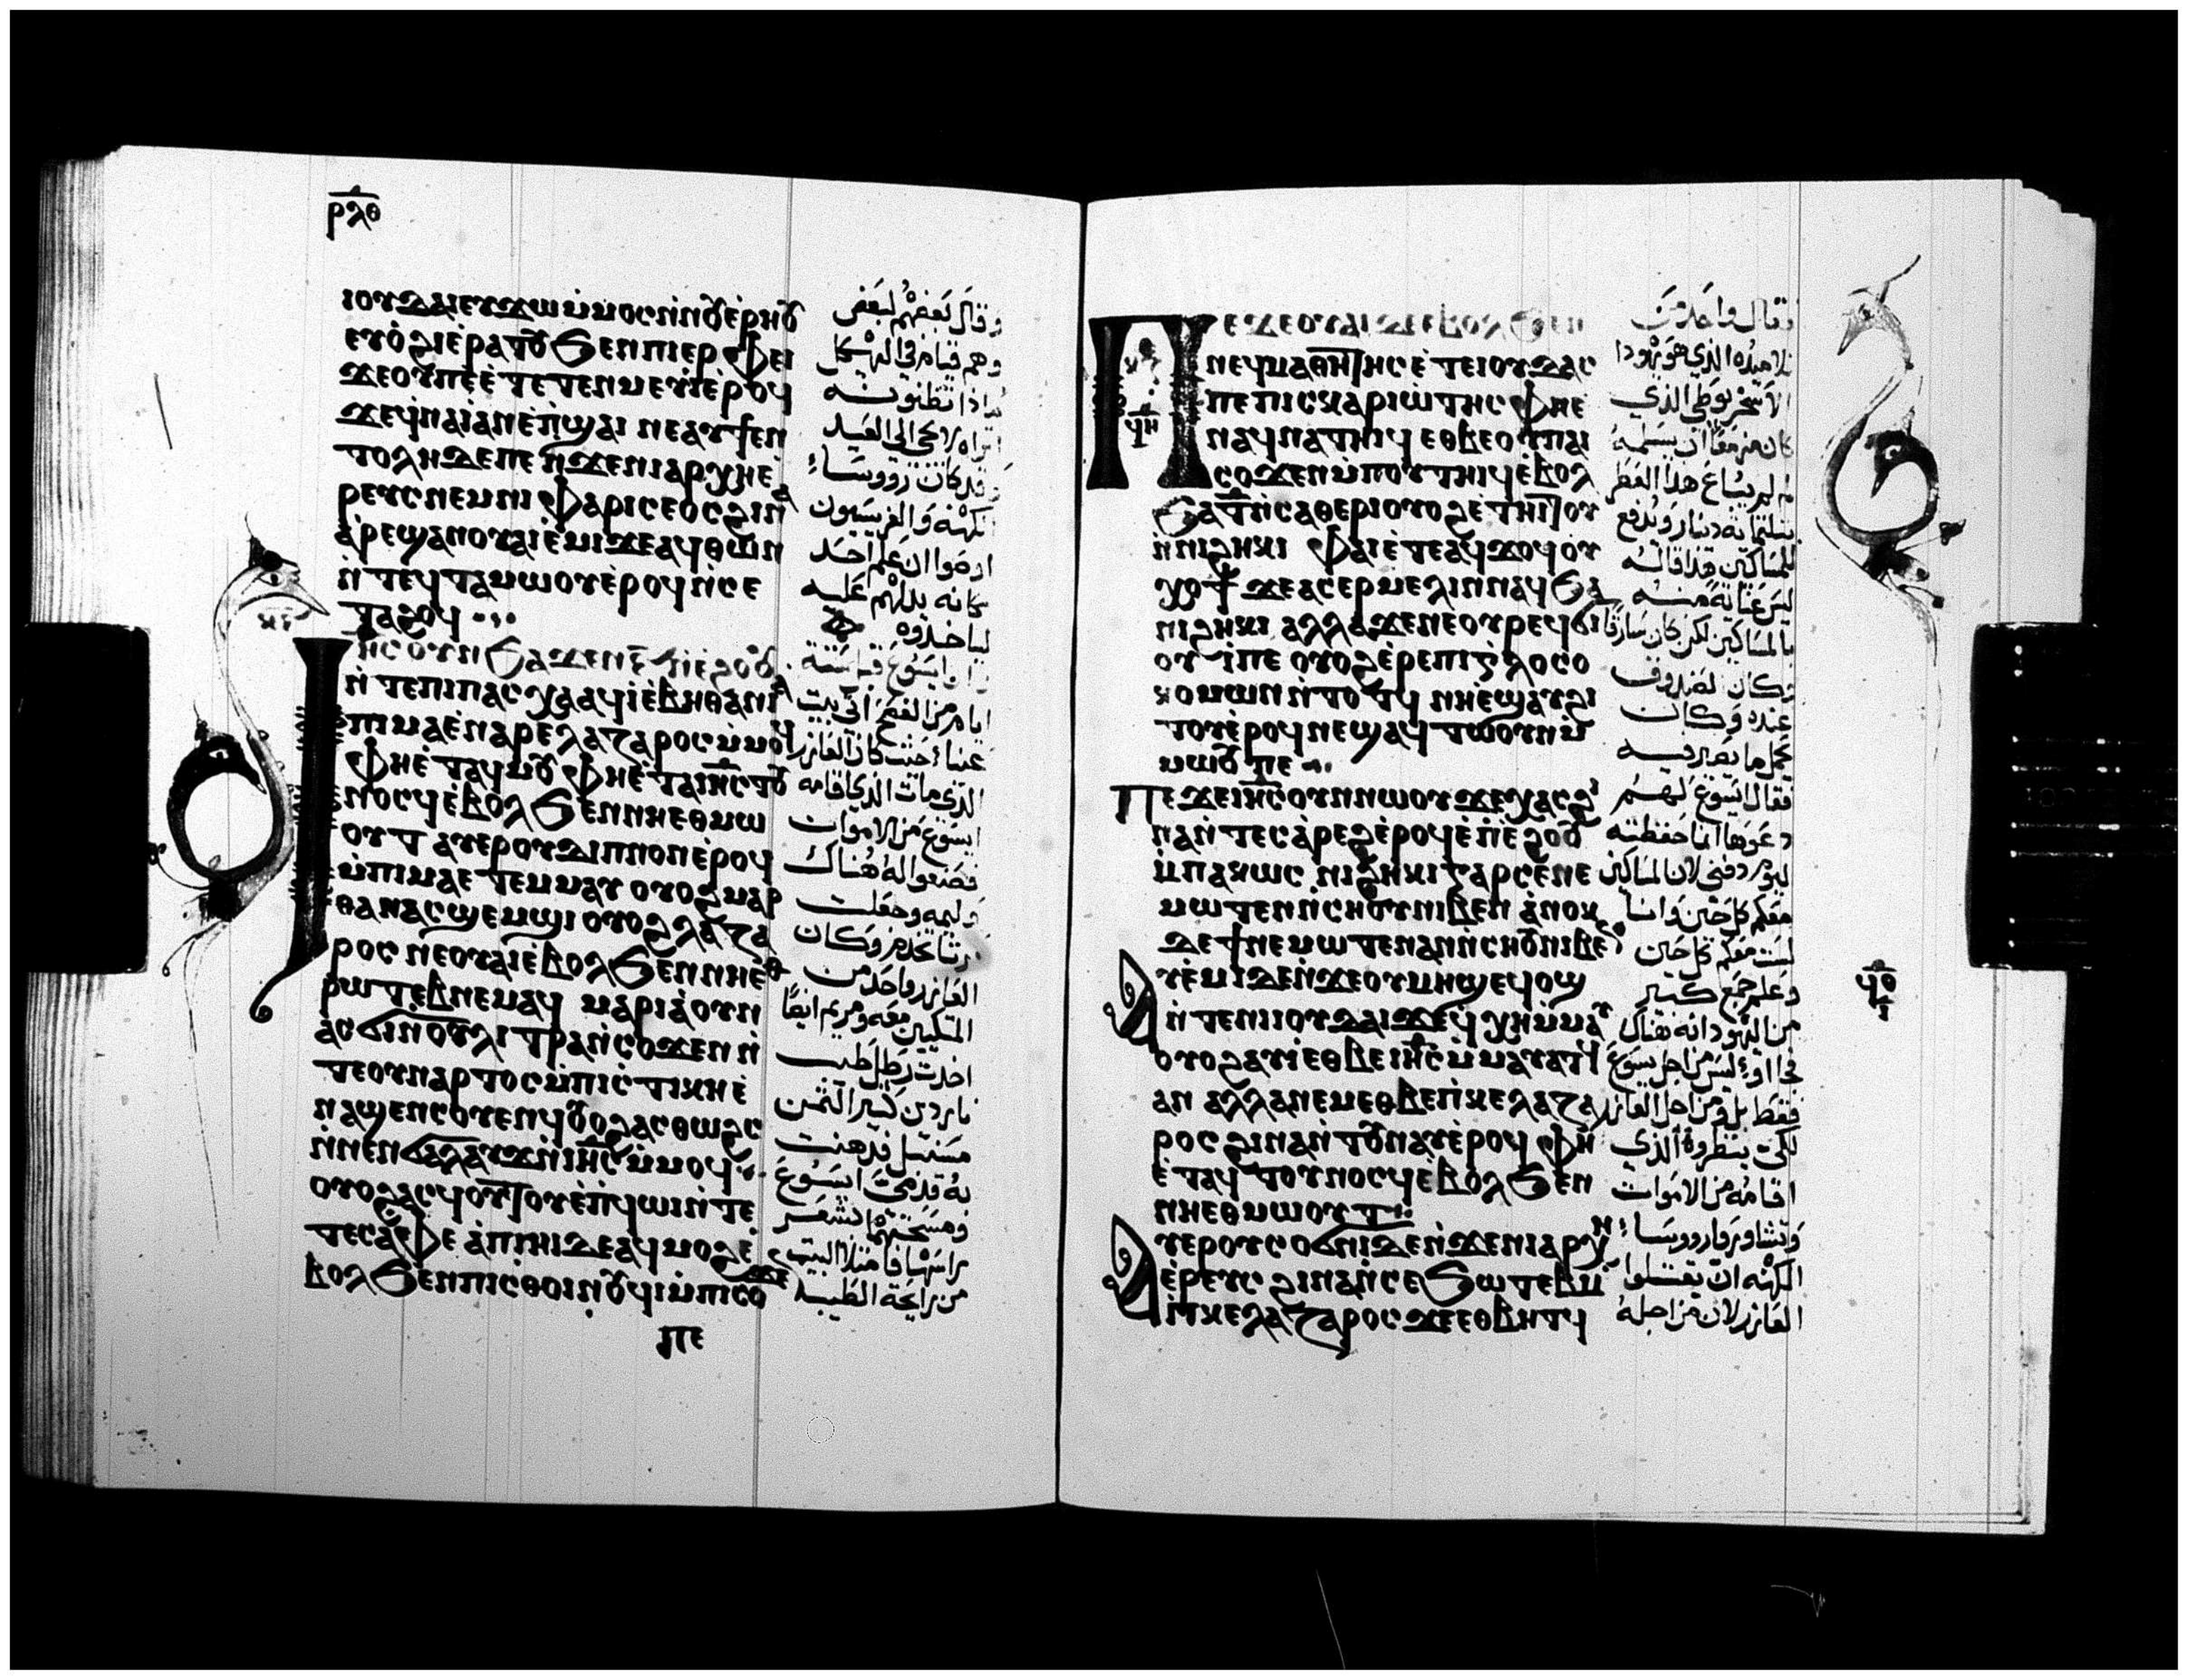 ⲣⲗⲑ
ⲓⲟⲩⲇⲁⲓ ⲉⲩϫⲱ ⲙⲙⲟⲥ ⲛⲛⲟⲩⲉⲣⲏⲟⲩ
ⲉⲩⲟϩⲓ ⲉⲣⲁⲧⲟⲩ ϧⲉⲛ ⲡⲓⲉⲣⲫⲉⲓ
ϫⲉ ⲟⲩ ⲡⲉ ⲉⲧⲉⲧⲉⲛⲙⲉⲩⲓ ⲉⲣⲟϥ
ϫⲉ ϥⲛⲁⲓ ⲁⲛ ⲉⲡϣⲁⲓ ⲛⲉⲁⲩϯ ⲉⲛ
ⲧⲟⲗⲏ ⲇⲉ ⲡⲉ ⲛϫⲉ ⲛⲓⲁⲣⲭⲏⲉ
ⲣⲉⲩⲥ ⲛⲉⲙ ⲛⲓⲫⲁⲣⲓⲥⲉⲟⲥ ϩⲓⲛⲁ
ⲁⲣⲉϣⲁⲛ ⲟⲩⲁⲓ ⲉⲙⲓ ϫⲉ ⲁϥⲑⲱⲛ
ⲛⲧⲉϥⲧⲁⲙⲱⲟⲩ ⲉⲣⲟϥ ⲛⲥⲉ
ⲧⲁϩⲟϥ
ⲓⲏⲥ ⲟⲩⲛ ϧⲁϫⲉⲛ ⲋ ⲛⲉϩⲟⲟⲩ
ⲛⲧⲉ ⲡⲓⲡⲁⲥⲭⲁ ⲁϥⲓ ⲉⲃⲏⲑⲁⲛⲓⲁ
ⲡⲓⲙⲁ ⲉⲛⲁⲣⲉ ⲗⲁⲍⲁⲣⲟⲥ ⲙⲙⲟϥ
ⲫⲏ ⲉⲧⲁϥⲙⲟⲩ ⲫⲏ ⲉⲧⲁ ⲓⲏⲥ ⲧⲟⲩ
ⲛⲟⲥϥ ⲉⲃⲟⲗ ϧⲉⲛ ⲛⲏⲉⲑⲙⲱ
ⲟⲩⲧ ⲁⲩⲉⲣ ⲟⲩⲇⲓⲡⲛⲟⲛ ⲉⲣⲟϥ
ⲙⲡⲓⲙⲁ ⲉⲧⲉⲙⲙⲁⲩ ⲟⲩⲟϩ ⲙⲁⲣ
ⲑⲁ ⲛⲁⲥϣⲉⲙϣⲓ ⲟⲩⲟϩ ⲗⲁⲍⲁ
ⲣⲟⲥ ⲛⲉ ⲟⲩⲁⲓ ⲉⲃⲟⲗ ϧⲉⲛ ⲛⲏⲉⲑ
ⲣⲱⲧⲉⲃ ⲛⲉⲙⲁϥ ⲙⲁⲣⲓⲁ ⲟⲩⲛ
ⲁⲥϭⲓ ⲛⲟⲩⲗⲓⲧⲣⲁ ⲛⲥⲟϫⲉⲛ ⲛ
ⲧⲉ ⲟⲩⲛⲁⲣⲧⲟⲥ ⲙⲡⲓⲥⲧⲓⲕⲏ ⲉ
ⲛⲁϣⲉⲛ ⲥⲟⲩⲉⲛϥ ⲟⲩⲟϩ ⲁⲥⲑⲱϩⲥ
ⲛⲛⲉⲛϭⲁⲗⲁⲩϫ ⲛⲓⲏⲥ ⲙⲙⲟϥ
ⲟⲩⲟϩ ⲁⲥϥⲟⲧⲟⲩ ⲉⲡϥⲱⲓ ⲛⲧⲉ
ⲧⲉⲥⲁⲫⲉ ⲁ ⲡⲓⲏⲓ ⲇⲉ ⲁϥⲙⲟϩ ⲉ
ⲃⲟⲗ ϧⲉⲛ ⲡⲓⲥⲑⲟⲓⲛⲟⲩϥⲓ ⲙⲡⲓⲥⲟϫⲉ
ⲡⲉ
وقال بعضهم لبعض
وهم قيام في الهيكل
ماذا تظنونه
اتراه لا يجي الى العيد
وقد كانت روسا
الكهنه والفريسيون
اوصوا ان علم احد
مكانه يدلهم عليه
لياخذوه
وان ايسوع قبل ستة
ايام من الفصح اتى بيت
عنيا حيث كان العازر
الذي مات الذي اقامه
ايسوع من الاموات
فصنعوا له هناك
وليمه وجعلت
مرثا تخدم وكان
العازر واحد من
المتكيين معه ومريم ايضا
اخدت رطل طيب
ناردين كثير الثمن
فدهنت
به قدمى ايسوع
ومسحتهما بشعر
راسها فامتلا البيت
من رايحة الطيب
ⲡⲉϫⲉ ⲟⲩⲁⲓ ⲇⲉ ⲉⲃⲟⲗ ϧⲉⲛ
ⲛⲉϥⲙⲁⲑⲏⲧⲏⲥ ⲉⲧⲉ ⲓⲟⲩⲇⲁⲥ
ⲡⲉ ⲡⲓⲥⲕⲁⲣⲓⲱⲧⲏⲥ ⲫⲏ ⲉ
ⲛⲁϥⲛⲁⲧⲏⲓϥ ⲉⲑⲃⲉ ⲟⲩ ⲡⲁⲓ
ⲥⲟϫⲉⲛ ⲙⲡⲟⲩⲧⲏⲓϥ ⲉⲃⲟⲗ
ϧⲁ ⲧ ⲛⲥⲁⲑⲉⲣⲓ ⲟⲩⲟϩ ⲉⲧⲏⲓⲧⲟⲩ
ⲛⲛⲓϩⲏⲕⲓ ⲫⲁⲓ ⲉⲧⲉ ⲁϥϫⲟϥ ⲟⲩ
ⲭⲟⲧ ϫⲉ ⲁⲥⲉⲣⲙⲉⲗⲓⲛ ⲛⲁϥ ϧⲁ
ⲛⲓϩⲏⲕⲓ ⲁⲗⲗⲁ ϫⲉ ⲛⲉ ⲟⲩⲣⲉϥϭⲓ
ⲟⲩⲓ ⲡⲉ ⲟⲩⲟϩ ⲉⲣⲉ ⲡⲓⲅⲗⲟⲥⲟ
ⲕⲟⲙⲱⲛ ⲛⲧⲟⲧϥ ⲛⲏ ⲉϣⲁⲩϩⲓ
ⲧⲟⲩ ⲉⲣⲟϥ ⲛⲉϣⲁϥⲧⲱⲟⲩⲛ ⲙ
ⲙⲱⲟⲩ ⲡⲉ
ⲡⲉϫⲉ ⲓⲏⲥ ⲟⲩⲛ ⲛⲱⲟⲩ ϫⲉ ⲭⲁⲥ ϩⲓ
ⲛⲁ ⲛⲧⲉⲥⲁⲣⲉϩ ⲉⲣⲟϥ ⲉⲡⲉϩⲟⲟⲩ
ⲙⲡⲁⲕⲱⲥ ⲛⲓϩⲏⲕⲓ ⲅⲁⲣ ⲥⲉⲛⲉ
ⲙⲱⲧⲉⲛ ⲛⲥⲏⲟⲩ ⲛⲓⲃⲉⲛ ⲁⲛⲟⲕ
ⲇⲉ ϯⲛⲉⲙⲱⲧⲉⲛ ⲁⲛ ⲛⲥⲏⲟⲩ ⲛⲓⲃⲉⲛ
ⲁⲩⲉⲙⲓ ⲇⲉ ⲛϫⲉ ⲟⲩⲙⲏϣ ⲉϥⲟϣ
ⲛⲧⲉ ⲛⲓⲓⲟⲩⲇⲁⲓ ϫⲉ ϥⲭⲏ ⲙⲙⲁⲩ
ⲟⲩⲟϩ ⲁⲩⲓ ⲉⲑⲃⲉ ⲓⲏⲥ ⲙⲙⲁⲩⲁⲧϥ
ⲁⲛ ⲁⲗⲗⲁ ⲛⲉⲙ ⲉⲑⲃⲉ ⲡⲕⲉⲗⲁⲍⲁ
ⲣⲟⲥ ϩⲓⲛⲁ ⲛⲧⲟⲩⲛⲁⲩ ⲉⲣⲟϥ ⲫⲏ
ⲉⲧⲁϥⲧⲟⲩⲛⲟⲥϥ ⲉⲃⲟⲗ ϧⲉⲛ
ⲛⲏⲉⲑⲙⲱⲟⲩⲧ
ⲁⲩⲉⲣⲟⲩⲥⲟϭⲛⲓ ⲇⲉ ⲛϫⲉ ⲛⲓⲁⲣⲭⲏ
ⲉⲣⲉⲩⲥ ϩⲓⲛⲁ ⲛⲥⲉϧⲱⲧⲉⲃ ⲙ
ⲡⲕⲉⲗⲁⲍⲁⲣⲟⲥ ϫⲉ ⲉⲑⲃⲏⲧϥ
فقال واحد من
تلاميذه الذي هو يهودا
الاسخريوطي الذي
كان مزمعا ان يسلمه
لم لم يباع هذا العطر
بثلثمايه دينار ويدفع
للمساكين هذا قاله
ليس عناية منه
بالمساكين لكن كان سارقا
وكان الصندوق
عنده وكان
يحمل ما يصير فيه
فقال ايسوع لهم
دعوها انما حفظته
ليوم دفني لان المساكين
معكم كل حين وانا
لست معكم كل حين
وعلم جمع كبير
من اليهود انه هناك
فجااو ليس من اجل يسوع
فقط بل ومن اجل العازر
لكي ينظروه الذي
اقامه من الاموات
وتشاوروا روسا
الكهنه ان يقتلوا
العازر لان من اجله